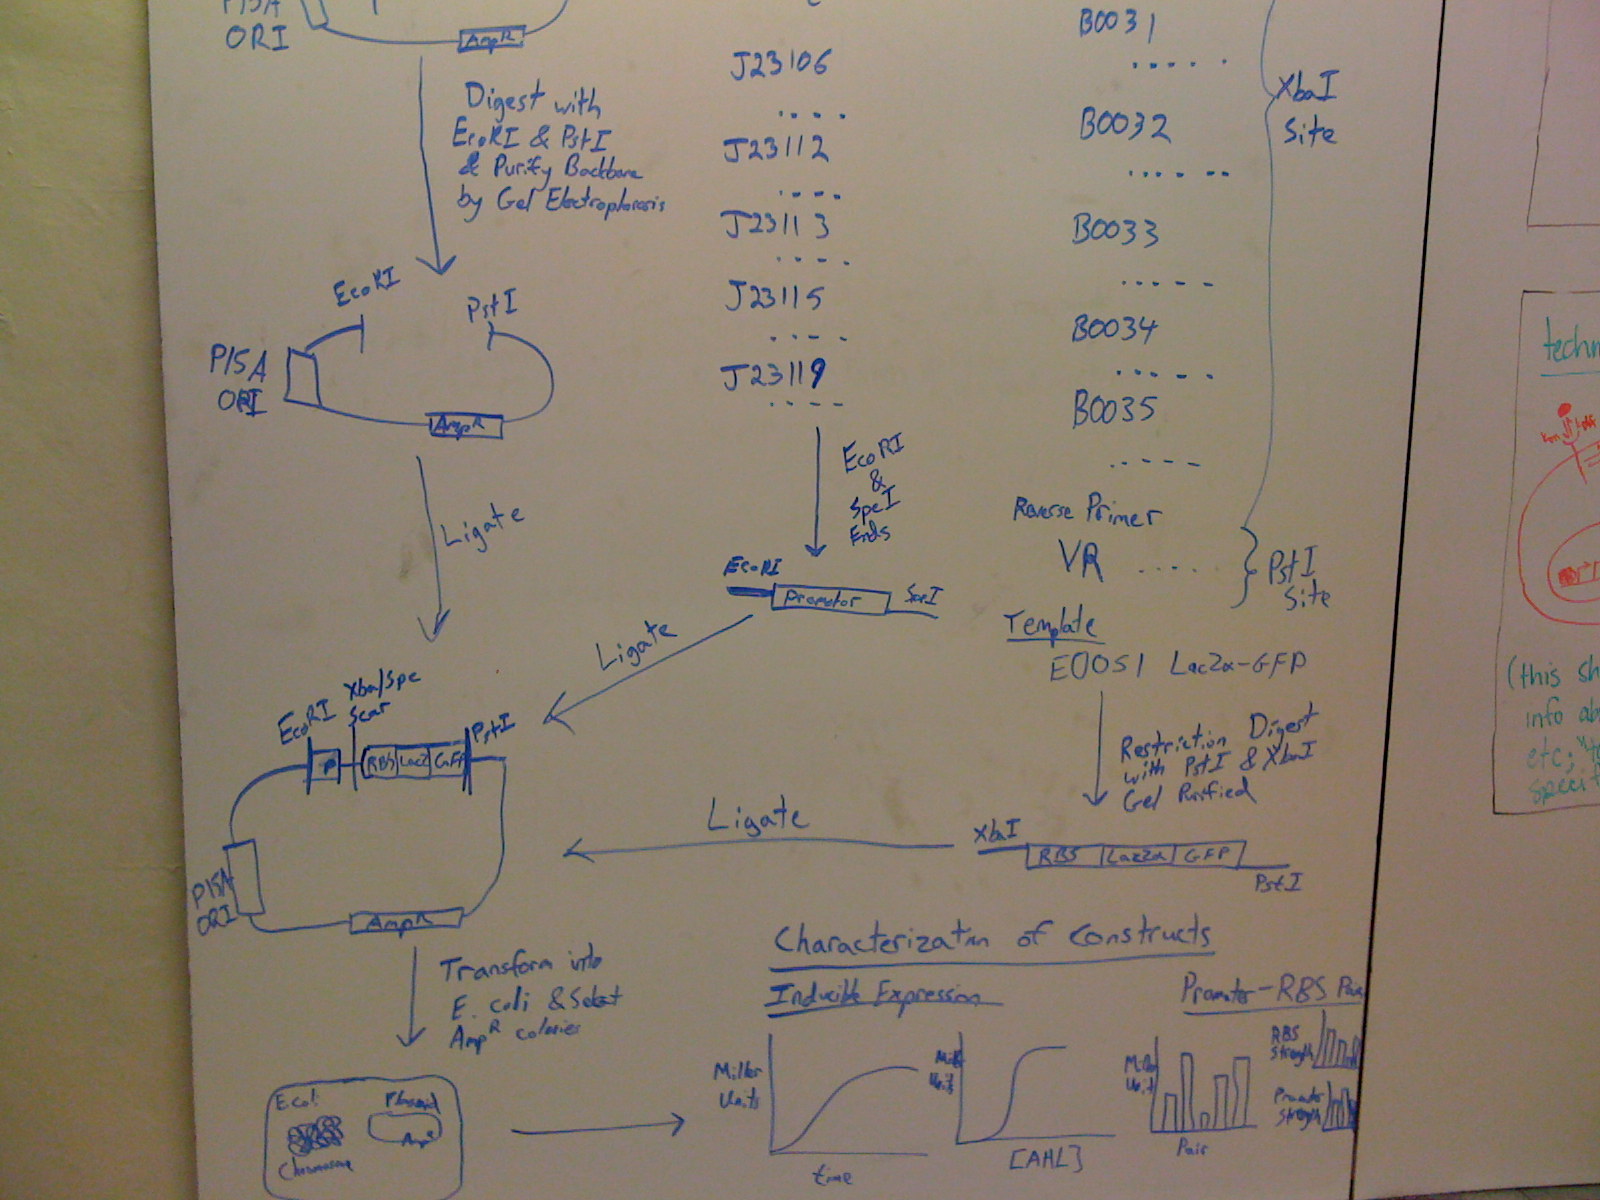 P15A
ORI
AmpR
Digest with
EcoRI & PstI
& Purify Backbone
by Gel Electrophoresis
EcoRI
PstI
P15A
ORI
AmpR
Ligate
J23106
....
J23112
....
J23113
....
J23115
....
J23119
....
EcoRI
&
SpeI
Ends
EcoRI
Promotor
SpeI
Ligate
B0031
.....
B0032
.....
B0033
.....
B0034
.....
B0035
.....
XbaI
Site
Reverse Primer
VR .....
PstI
Site
Template
E0051 LacZα-GFP
Restriction Digest
with PstI & XbaI
Gel Purified
XbaI
RBS LacZα GFP
PstI
Ligate
EcoRI
Xba/Spe
Scar
PstI
P
RBS LacZ GFP
P15A
ORI
AmpR
Transform into
E. coli & Select
AmpR colonies
E coli
Plasmid
AmpR
Chromosome
Characterization of Constructs
Inducible Expression
Miller
Units
time
Miller
Units
[AHL]
Promoter-RBS
Miller
Units
Pair
RBS
Strength
Promoter
Strength
(this sh
info ab
etc;
specif